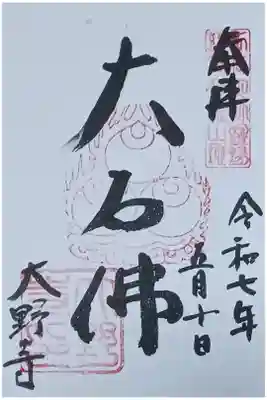 奉拝
令和七年
五月十日
大石佛
大野寺